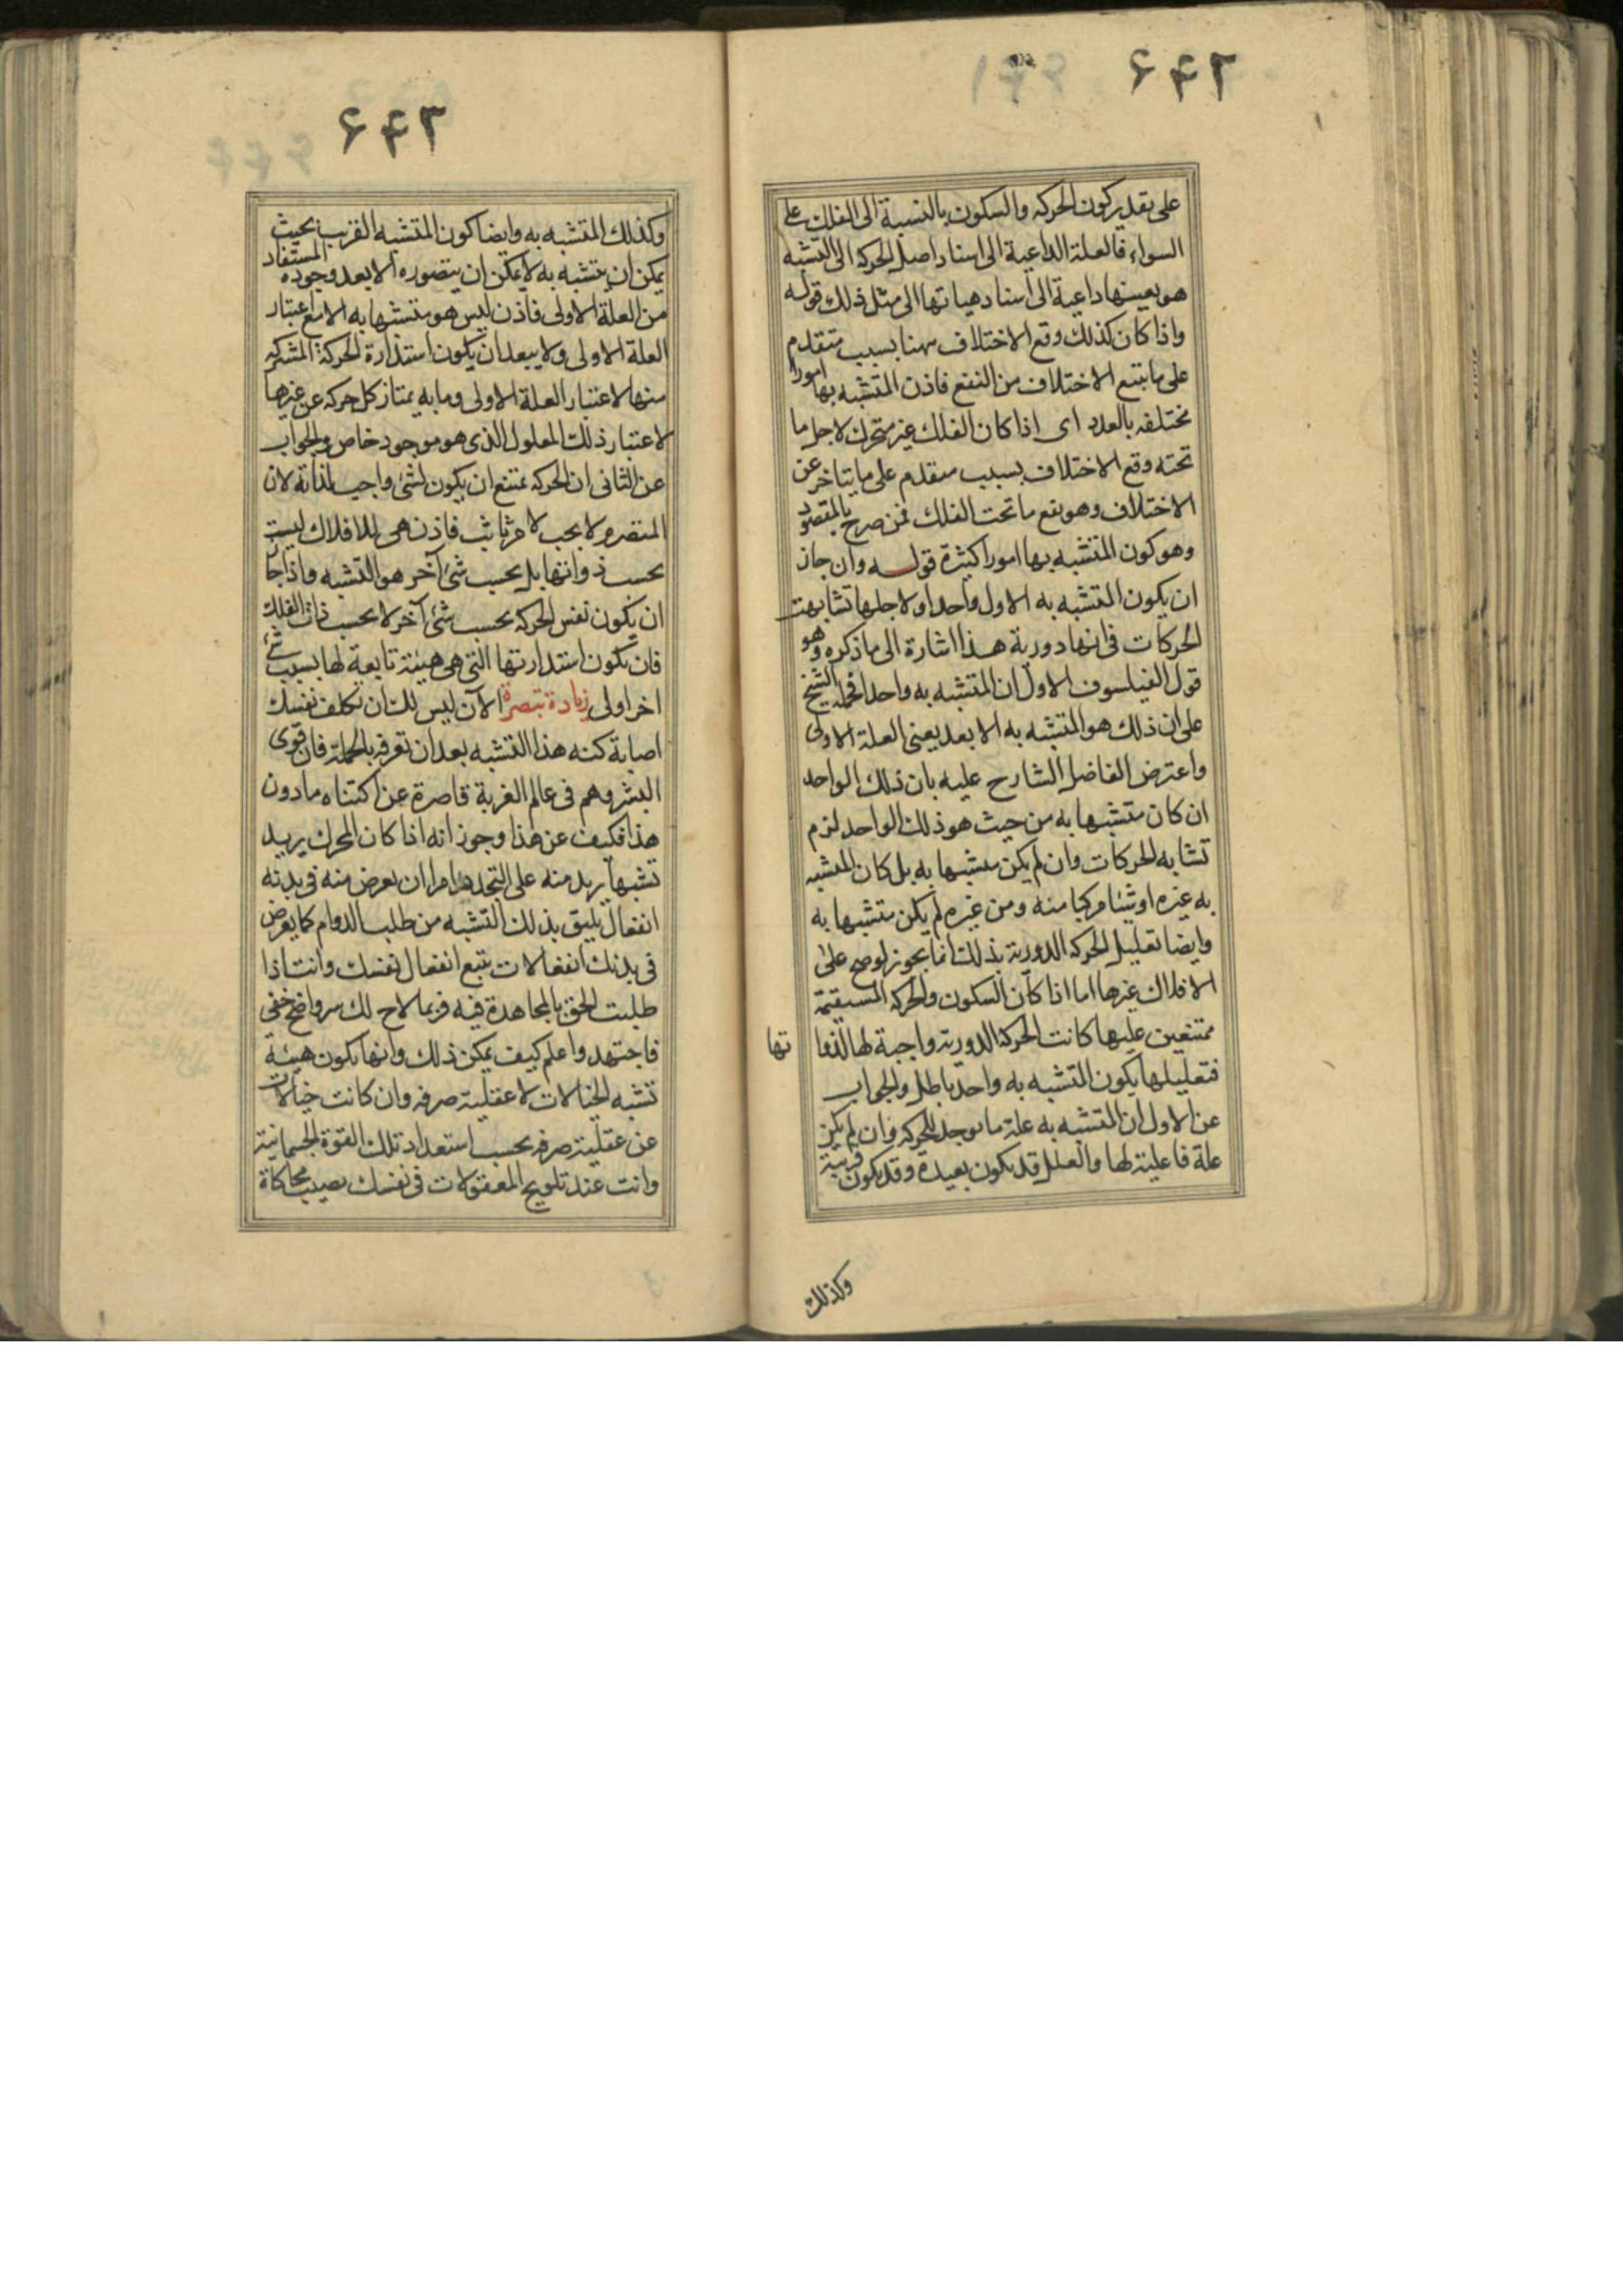 ۶۴۲
على تقدير كون الحركة والسكون بالنسبة الى الفلك على
السواء فالعلة الداعية الى اسناد اصل الحركة الى التشبه
هو بعينها داعية الى اسناد هياتها الى مثل ذلك قوله
واذا كان كذلك وقع الاختلاف ههنا بسبب متقدم
على ما يتبع الاختلاف من النفع فاذن المتشبه بها امورا
مختلفه بالعدد اى اذا كان الفلك غير متحرك لاجل ما
تحته وقع الاختلاف بسبب متقدم على ما يتاخر عن
الاختلاف وهو نفع ما تحت الفلك فمن صرح بالمقصود
وهو كون المتشبه بها امورا كثيرة قوله وان جاز
ان يكون المتشبه به الاول واحدا ولاجلها تشابهت
الحركات فى انها دورية هذا اشارة الى ما ذكره وهو
قول الفيلسوف الاول ان المتشبه به واحد فحمله الشيخ
على ان ذلك هو المتشبه به الابعد يعنى العلة الاولى
واعترض الفاضل الشارح عليه بان ذلك الواحد
ان كان متشبها به من حيث هو ذلك الواحد لزم
تشابه الحركات وان لم يكن متشبها به بل كان المتشبه
به غيره او شيئا مركبا منه ومن غيره لم يكن متشبها به
وايضا تعليل الحركة الدورية بذلك انما يجوز لو صح على
الافلاك غيرها اما اذا كان السكون والحركة المستقيمة
ممتنعين عليها كانت الحركة الدورية واجبة لها لذوا تها
فتعليلها بكون المتشبه به واحد باطل والجواب
عن الاول ان المتشبه به علة ما بوجه للحركة وان لم يكن
علة فاعلية لها والعلل قد يكون بعيدة وقد يكون قريبة
وكذلك
۶۴۳
وكذلك المتشبه به وايضا كون المتشبه القريب بحيث
يمكن ان يتشبه به لا يمكن ان يتصوره الا بعد وجوده المستفاد
من العلة الاولى فاذن ليس هو متشبها به الا مع اعتبار
العلة الاولى ولا يبعد ان يكون استدارة الحركة المشتركة
منها لاعتبار العلة الاولى وما به يمتاز كل حركة عن غيرها
لاعتبار ذلك المعلول الذى هو موجود خاص والجواب
عن الثانى ان الحركة يمتنع ان يكون لشئ واجب لذاته لان
المتصرم لا يجب لامر ثابت فاذن هى للافلاك ليست
بحسب ذواتها بل بحسب شئ آخر هو التشبه واذا جاز
ان يكون نفس الحركة بحسب شئ آخر لا بحسب ذات الفلك
فان تكون استدارتها التى هى هيئة تابعة لها بسبب شئ
اخر اولى زيادة تبصرة الآن ليس لك ان تكلف نفسك
اصابة كنه هذا التشبه بعد ان تعرفه بالجملة فان قوى
البشر وهم فى عالم الغربة قاصرة عن اكتناه ما دون
هذا فكيف عن هذا وجوز انه اذا كان المحرك يريد
تشبها يريد منه على التجدد امرا ان يعرض منه فى بدنه
انفعال يليق بذلك التشبه من طلب الدوام كما يعرض
فى بدنك انفعالات تتبع انفعال نفسك وانت اذا
طلبت الحق بالمجاهدة فيه فربما لاح لك سر واضح خفى
فاجتهد واعلم كيف يمكن ذلك وانها يكون هيئة
تشبه الخيالات لا عقلية صرفه وان كانت خيالات
عن عقلية صرفه بحسب استعداد تلك القوة الجسمانية
وانت عند تلويح المعقولات فى نفسك يصيب محاكاة